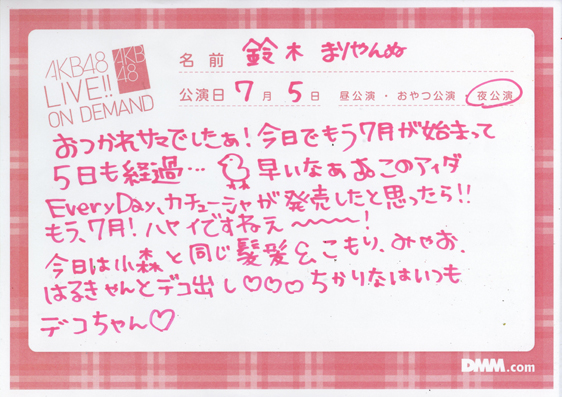 AKB48
LIVE!!
ON DEMAND
AKB
48
名前 鈴木 まりやんぬ
公演日 7月 5日 昼公演・おやつ公演・夜公演
おつかれサマでしたぁ!今日でもう7月が始まって
5日も経過… 早いなぁ このアイダ
EveryDay、カチューシャが発売したと思ったら!!
もう、7月!ハヤイですねぇ〜〜〜!
今日は小森と同じ髪髪 & こもり、みゃお、
はるきゃんとデコ出し♡♡♡ちかりなはいつも
デコちゃん♡
DMM.com